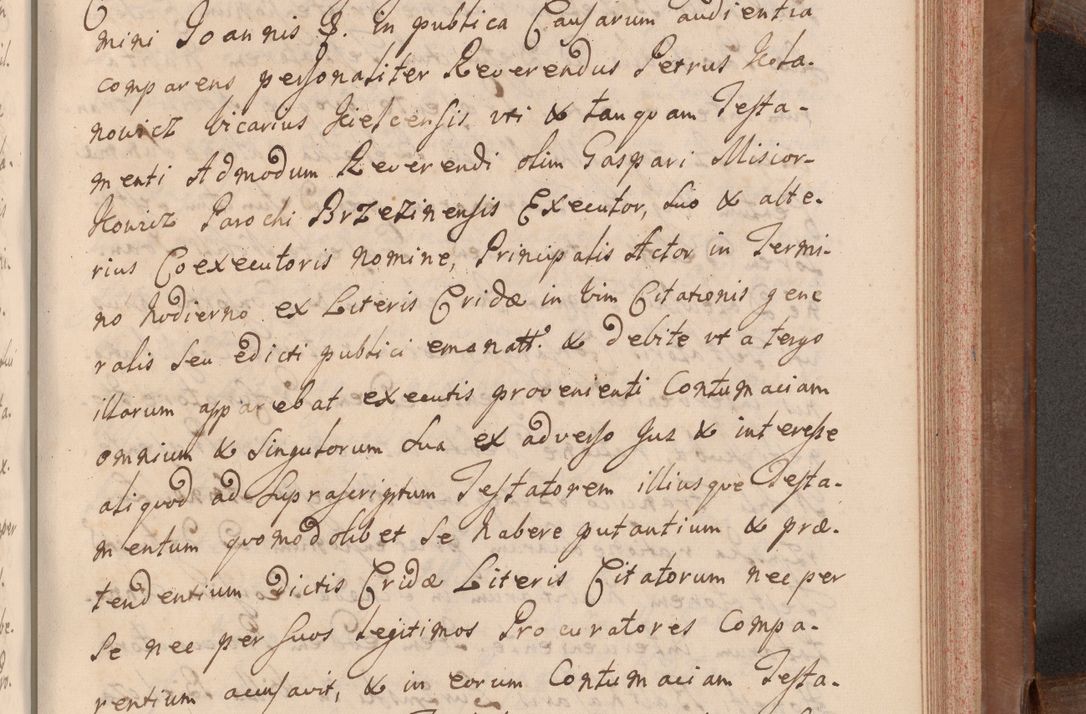 mini Joannis S. in publica Causarum audientia
comparens personaliter Reverendus Petrus Kola-
nowicz Vicarius Kielcensis uti & tanquam Testa-
menti Admodum Reverendi olim Gaspari Misior-
kowicz Parochi Brzezinensis Executor, suo & alte-
rius Coexecutoris nomine, Principalis Actor in Termi-
no hodierno ex Literis Cridæ in vim Citationis gene
ralis seu edicti publici emanatt: & debite ut a tergo
illarum apparebat executis provenienti Contumaciam
omnium & singulorum sua ex adverso Jus & interesse
aliquod ad suprascriptum Testatorem illiusque Testa-
mentum quomodolibet se habere putantium & præ-
tendentium dictis Cridæ Literis Citatorum nec per
se nec per suos legitimos Procuratores Compa-
rentium acusavit, & in eorum Contumaciam Testa-